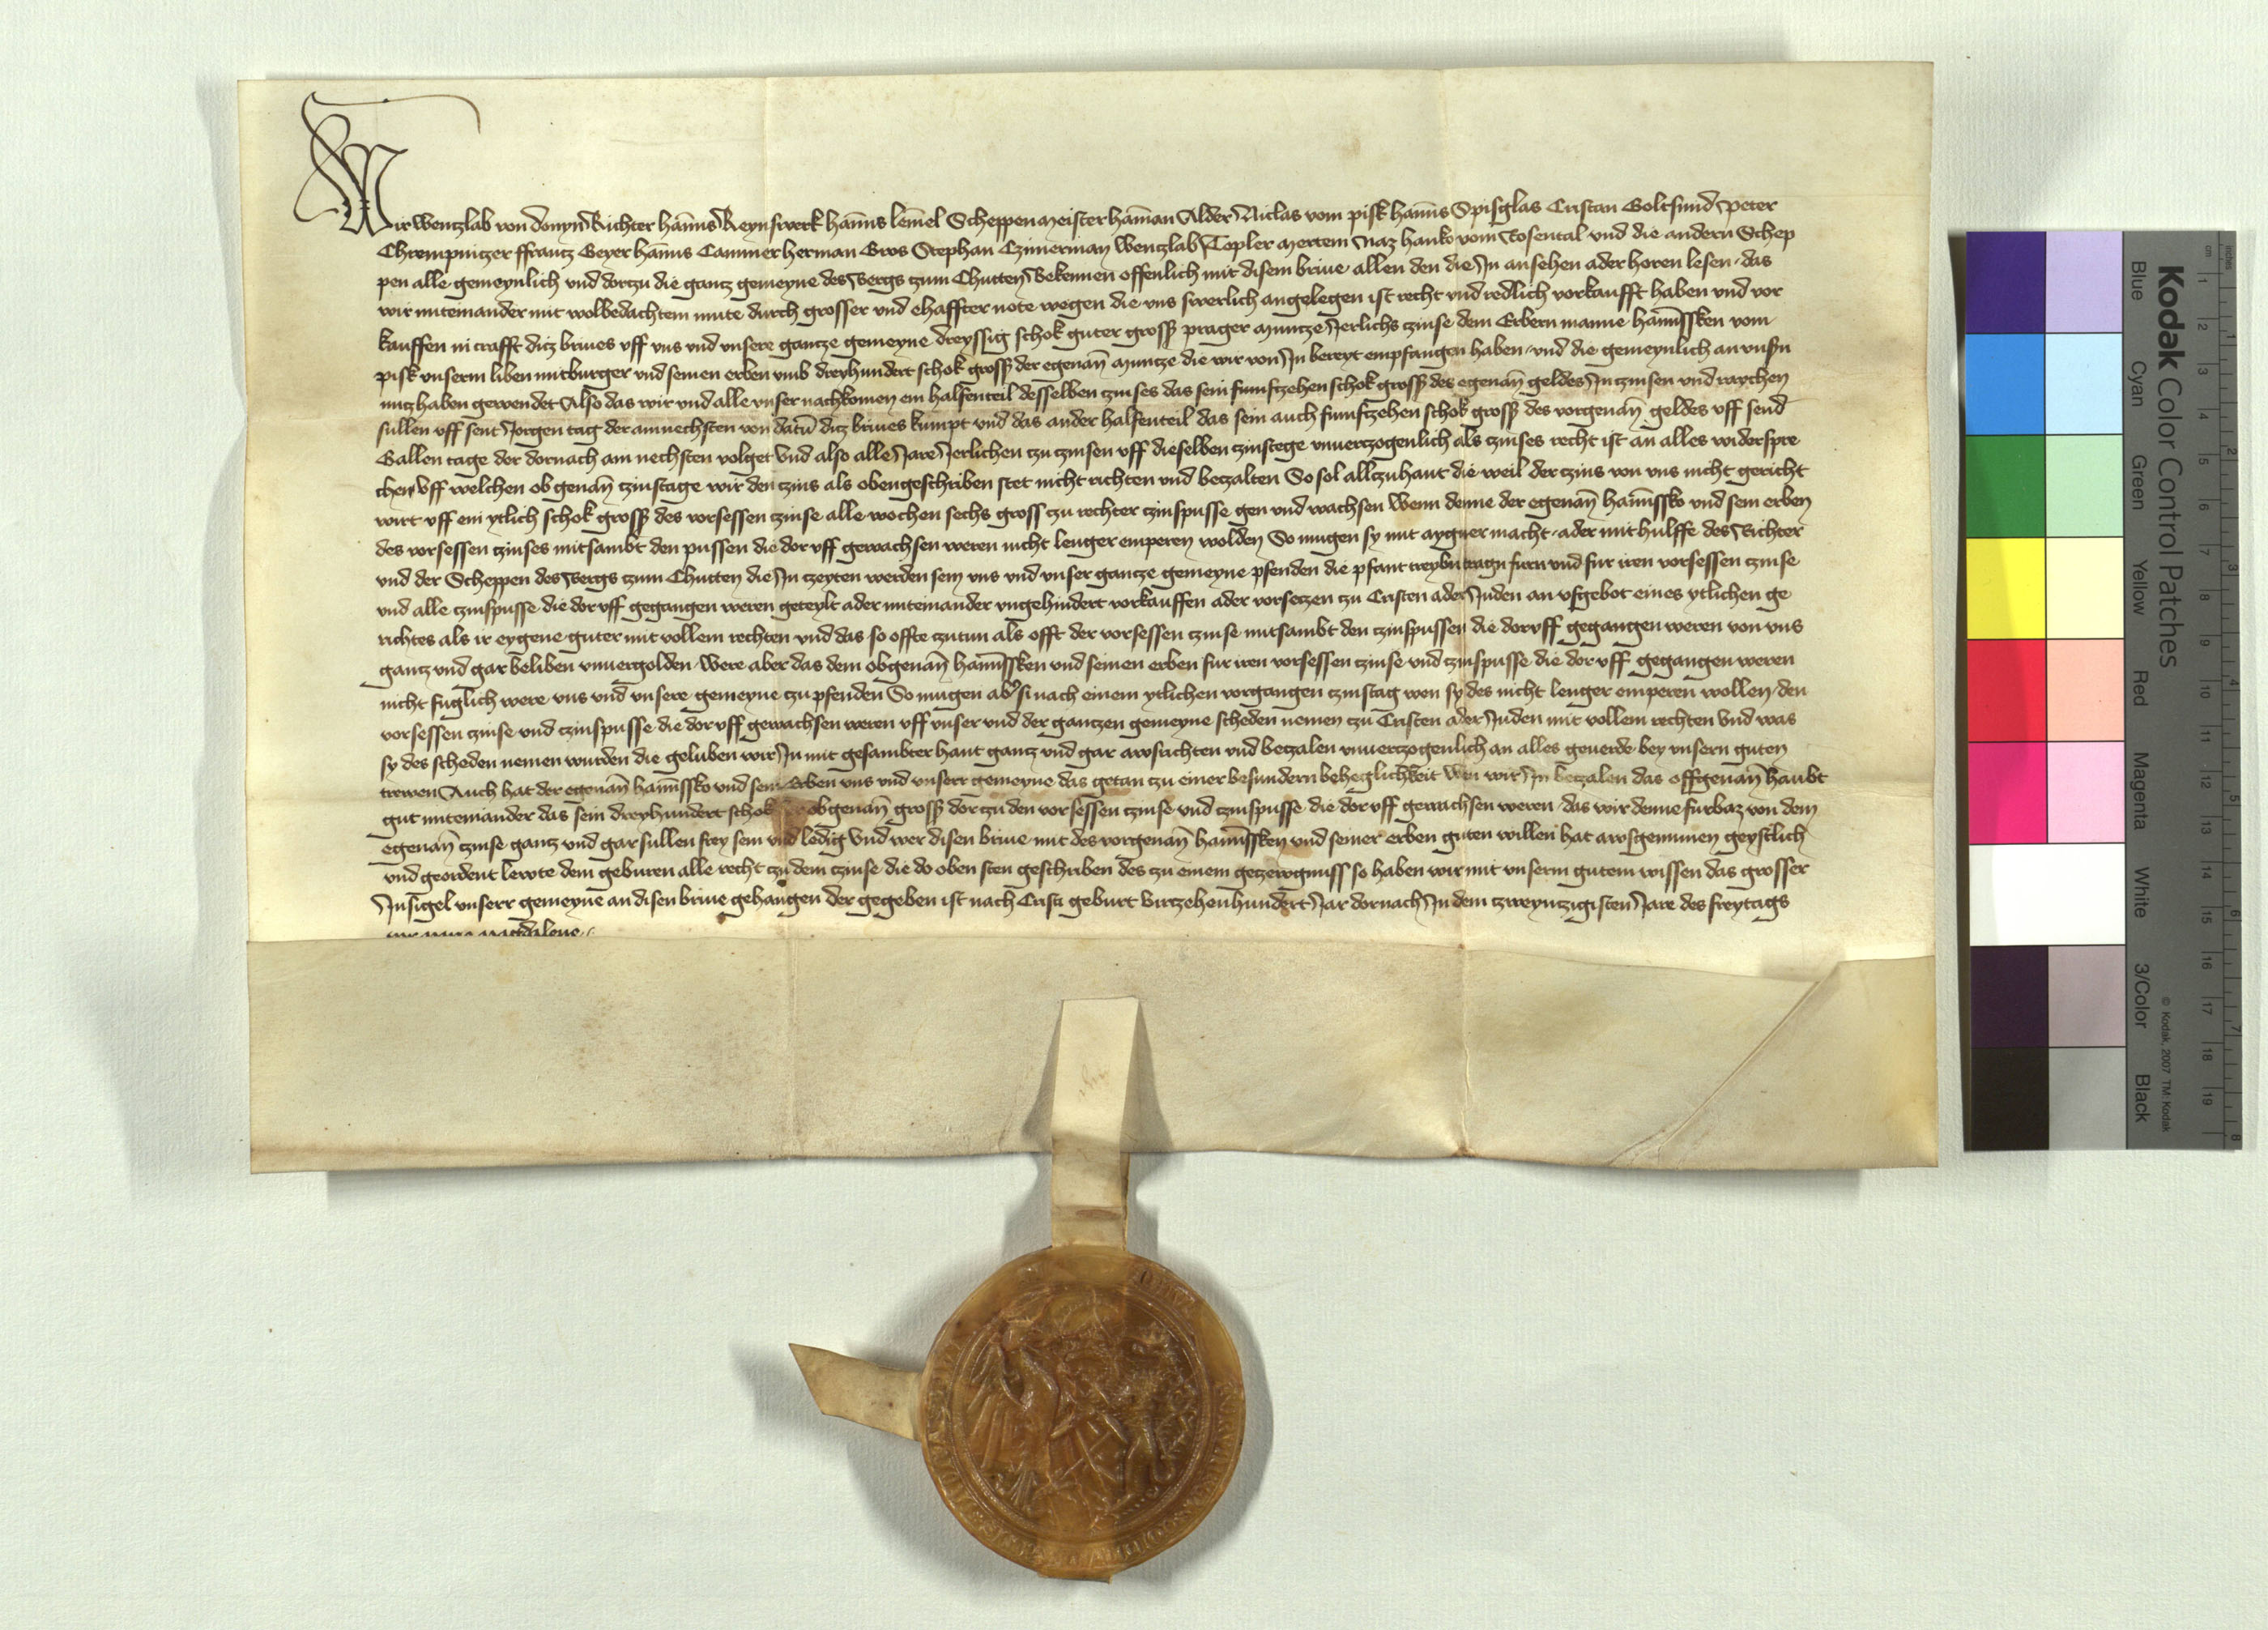 Wir Wenczlab von donyn Richter hanns Reynswerk hanns lemel Scheppenmeister haman Alder Niclas vom pisk hanns Spisglas Cristan Goltsmid Peter
Chrempniczer ffrancz Geyer hanns Cammer herman Gros Stephan Czimerman Wenczlab Topler Mertein Naz hanko vom Rosental und die andern Schep
pen alle gemeynlich und dorczu die gancz gemeyne des Bergs zum Chutten Bekennen offenlich mit disem briue allen den die In ansehen ader horen lesen das
wir miteinander mit wolbedachtem mute durch grosser und ehaffter note wegen die uns swerlich angelegen ist recht und redlich vorkaufft haben und vor
kauffen in crafft dicz briues uff uns und unsere gancze gemeyne dreyssig schok guter gross prager muncze Jerlichs czinse dem Erbern manne hannssken vom
pisk unserm liben mitburger und seinen erben umb dreyhundert schok gross der egenan muncze die wir von In bereyt empfangen haben und die gemeynlich an unsn
nucz haben gewendet Also das wir und alle unser nachkomen ein halfenteil desselben czinses das sein funfczehen schok gross des egenan geldes In czinsen und raychen
sullen uff sent Jorgen tag der am nechsten von datum dicz briues kumpt und das ander halfenteil das sein auch funfczehen schok gross des vorgenan geldes uff send
Gallen tage der dornach am nechsten volget Und also alle Jare Jerlichen czu czinsen uff dieselben czinstege unuerczogenlich als czinses recht ist an alles widerspre
chen Uff welchen obgenan czinstage wir den czins als obengeschriben stet nicht richten und beczalten So sol allczuhant die weil der czins von uns nicht gericht
wirt uff ein ytlich schok gross des vorsessen czinse alle wochen sechs gross czu rechter czinspusse gen und wachsen Wenn denne der egenan hannssko und sein erben
des vorsessen czinses mitsambt den pussen die doruff gewachsen weren nicht lenger emperen wolden So mugen sy mit aygner macht ader mit hulffe des Richter
und der Scheppen des Bergs zum Chutten die In czeyten werden sein uns und unser gancze gemeyne pfenden die pfant treybn tragn furn und fur iren vorsessen czinse
und alle czinspusse die doruff gegangen weren geteylt ader miteinander ungehindert vorkauffen ader vorseczen czu Cristen ader Juden an ufgebot eines ytlichen ge
richtes als ir eygene guter mit vollem rechten und das so offte czutun als offt der vorsessen czinse mitsambt den czinspussen die doruff gegangen weren von uns
gancz und gar beliben unuergolden Were aber das dem obgenan hannssken und seinen erben fur iren vorsessen czinse und czinspusse die doruff gegangen weren
nicht fuglich were uns und unsere gemeyne czu pfenden So mugen aber si nach einem ytlichen vorgangen czinstag wen sy des nicht lenger emperen wollen den
vorsessen czinse und czinspusse die doruff gewachsen weren uff unser und der ganczen gemeyne scheden nemen czu Cristen ader Juden mit vollem rechten Und was
sy des scheden nemen wurden die geluben wir In mit gesambter hant gancz und gar awsrichten und beczalen unuerczogenlich an alles geuerde bey unsern guten
trewen Auch hat der egenan hannssko und sein Erben uns und unserr gemeyne das getan czu einer besundern beheglichkeit Wen wir In beczalen das offtgenan haubt
gut miteinander das sein dreyhundert schok obgenan gross dorczu den vorsessen czinse und czinspusse die doruff gewachsen weren das wir denne furbaz von dem
egenan czinse gancz und gar sullen frey sein und ledig Und wer disen briue mit des vorgenan hannssken und seiner erben guten willen hat awsgenumen geystlich
und geordent lewte dem geburen alle recht czu dem czinse die do oben sten geschriben des zu einem geczewgnuss so haben wir mit unserm gutem wissen das grosser
Insigel unserr gemeyne an disen briue gehangen der gegeben ist nach Cristi geburt Virczehenhundert Jar dornach In dem czweynczigisten Jare des freytags
magdalene
Kodak Color Control Patches
Blue Cyan Green Yellow Red Magenta White 3/Color Black
© Kodak, 2007 TM: Kodak
cm 1 2 3 4 5 6 7 8 9 10 11 12 13 14 15 16 17 18 19
inches 1 2 3 4 5 6 7 8